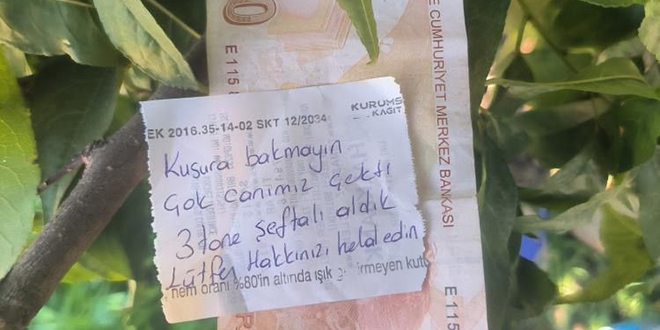 0
E 115 8
E CUMHURİYET MERKEZ BANKASI
EK 2016.35-14-02 SKT 12/2034
KURUMS
KAĞIT
Kusura bakmayın
Çok canımız çekti
3 tane şeftali aldık
Lütfen Hakkınızı helal edin
nem oranı %80'in altında ışık girmeyen kutu
E 115